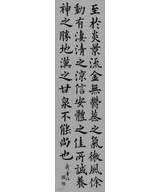 至於炎景流金無鬱蒸之氣微風徐
動有淒清之涼信安體之佳所誠養
神之勝地漢之甘泉不能尚也